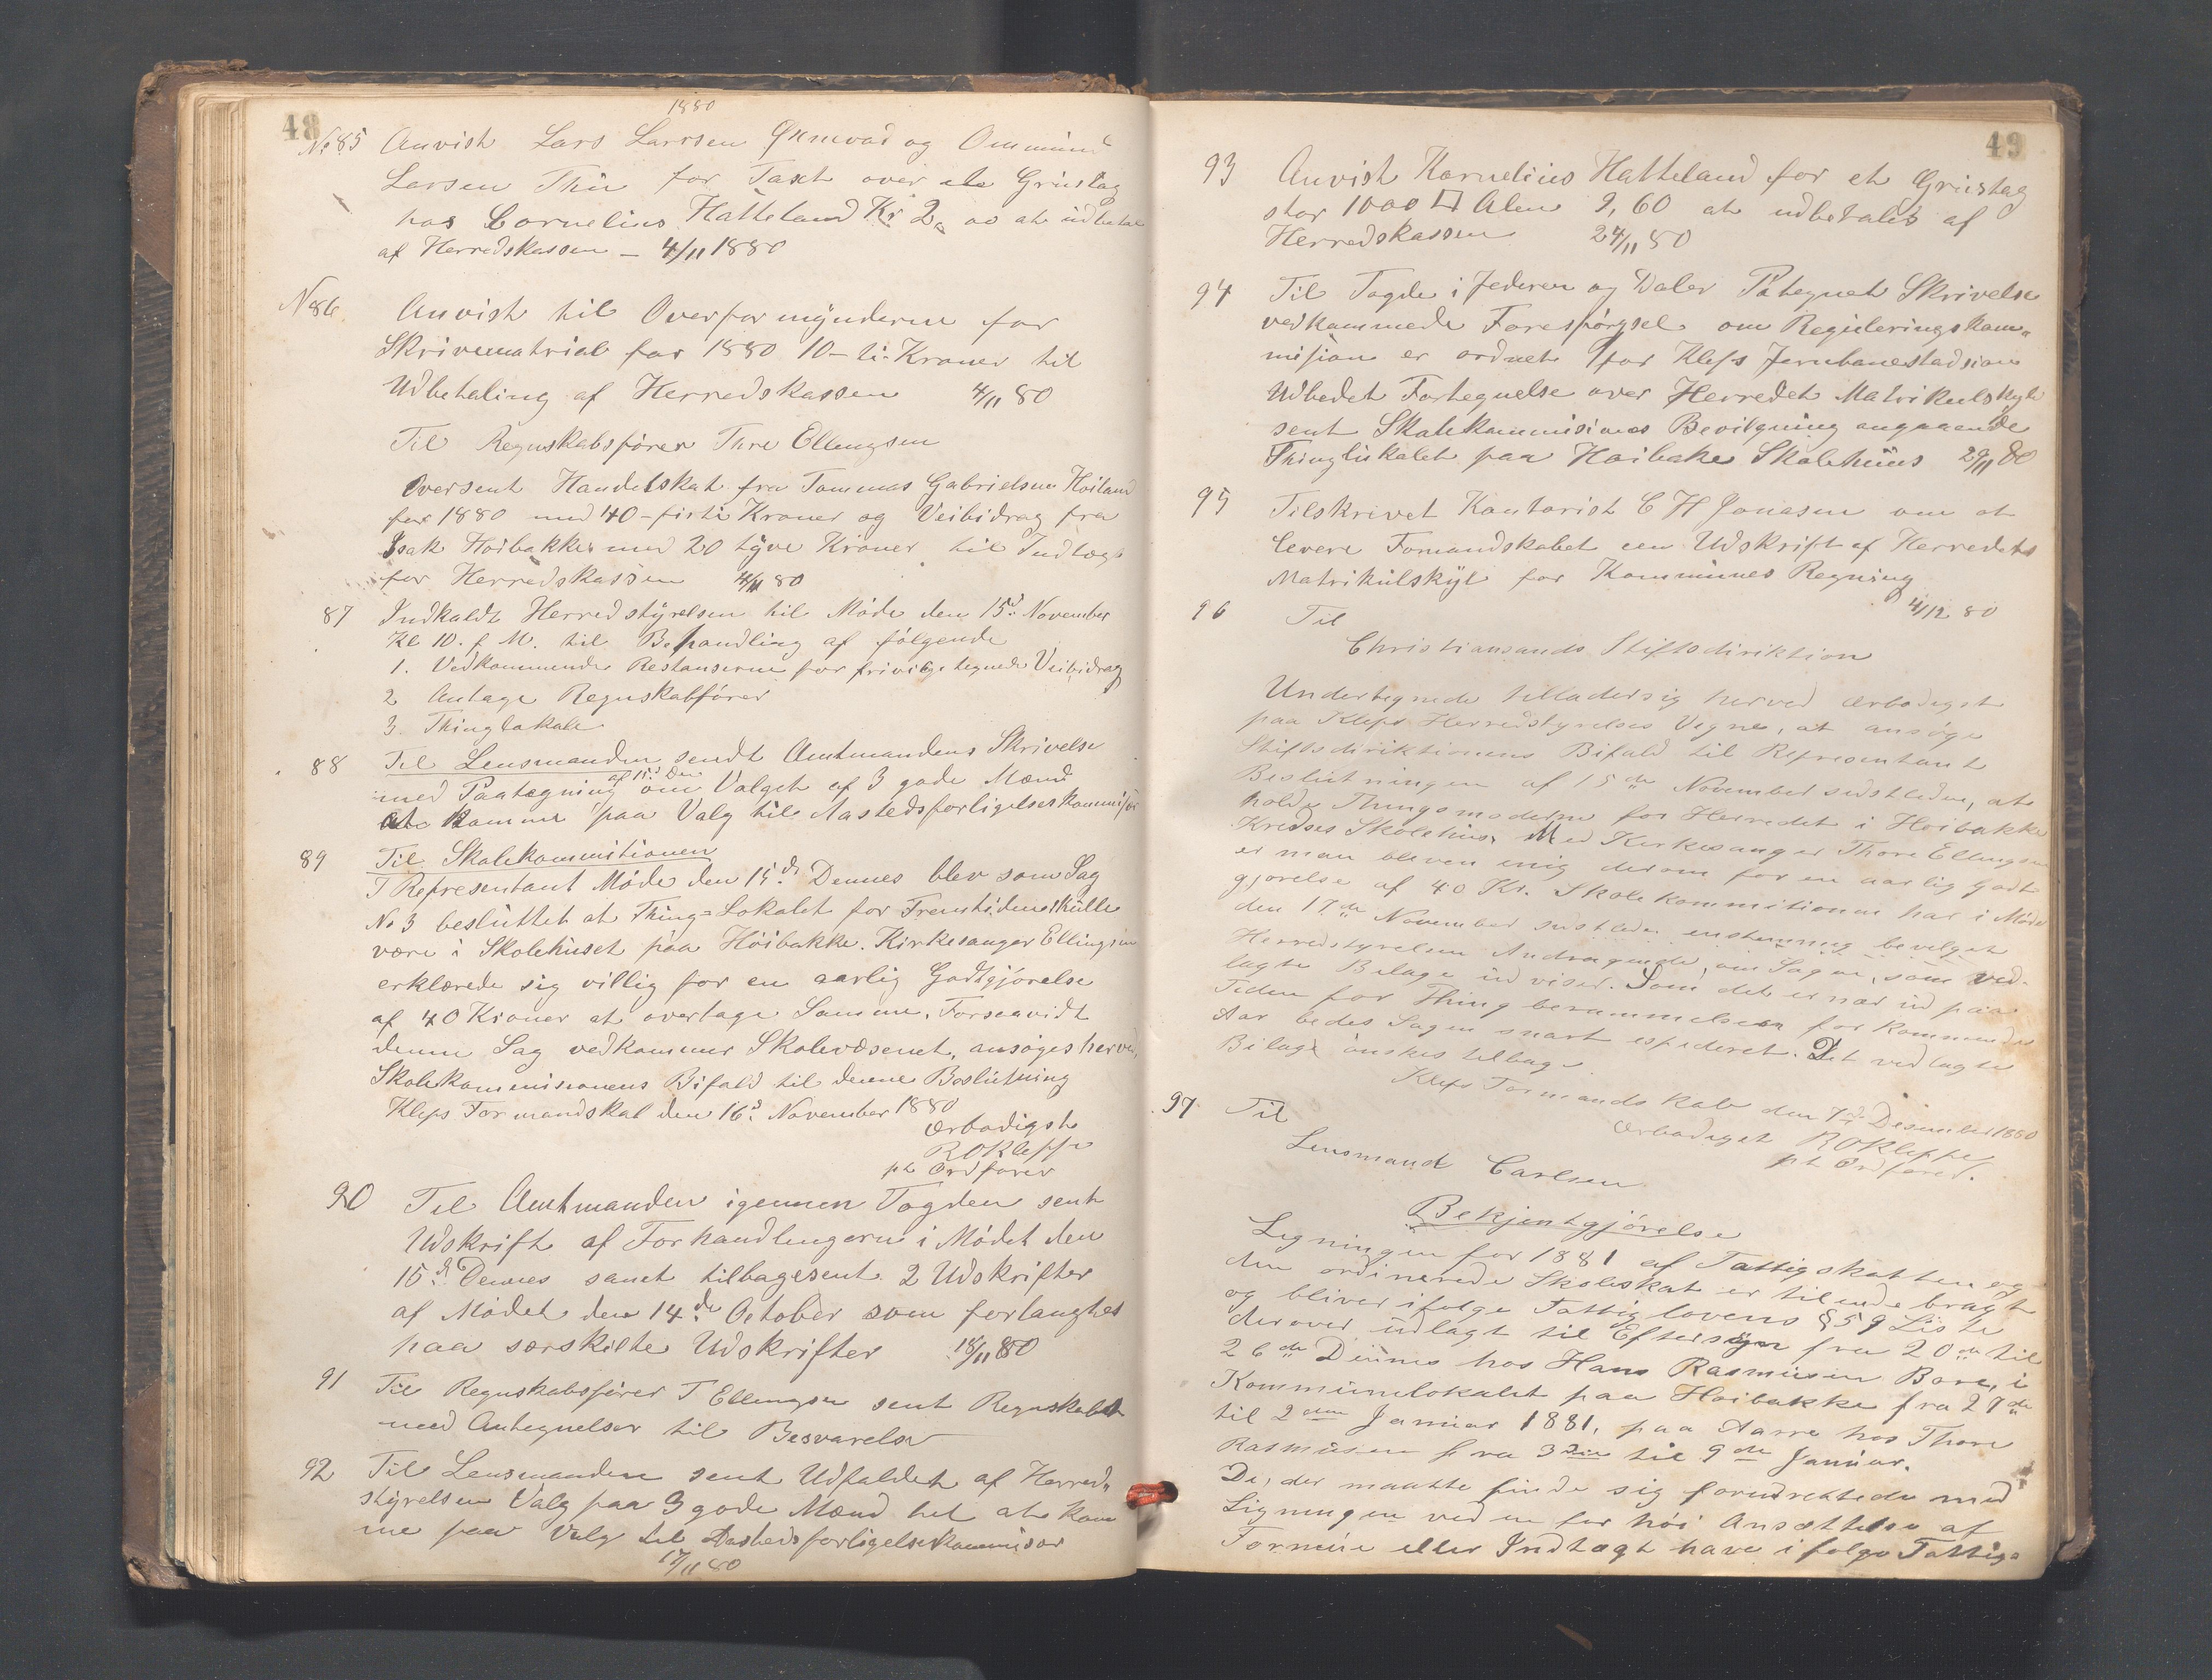 48
1880
No 85 Anvist Lars Larsen Grnevad og Ommund
Larsen Thu for Taxt over et Grustag
hos Cornelius Hatteland Kr 2, 00 at udbetale
af Herredskassen – 4/11 1880
No 86 Anvist til Overformynderne for
Skrivematrial for 1880 10 – ti Kroner til
Udbetaling af Herredskassen 4/11 80
Til Regnskabsfører Thre Ellengsen
Oversent Handelskat fra Tommas Gabrielsen Hoiland
for 1880 med 40 – firti Kroner og Veibidrag fra
Isak Hoibakke med 20 tyve Kroner til Indtægt
for Herredskassen 4/11 80
87 Indkaldt Herredstyrelsen til Møde den 15d November
Kl 10. f. M. til Behandling af følgende
1. Vedkommende Restanserne for frivilige tegnede Veibidrag
2 Antage Regnskabfører
3. Thinglokale
88 Til Lensmanden sendt Amtmandens Skrivelse
med Paategning af 15d Den om Valget af 3 gode Mænd
at komme paa Valg til Aastedsforligelseskommisær
89 Til Skolekommitionen
I Representant Møde den 15de Dennes blev som Sag
No 3 besluttet at Thing-Lokalet for Fremtiden skulle
være i Skolehuset paa Høibakke. Kirkesanger Ellingsen
erklærede sig villig for en aarlig Godtgjørelse
af 40 Kroner at overtage Samme. Forsaavidt
denne Sag vedkommer Skolevæsenet, ansøges herved,
Skolekommisionens Bifald til denne Beslutning
Kleps Formandskab den 16d November 1880
Ærbødigst
R O Kleppe
pt Ordfører
90 Til Amtmanden igennem Fogden sent
Udskrift af Forhandlingerne i Mødet den
15d Dennes samt tilbagesent 2 Udskrifter
af Mødet den 14de October som forlangtes
paa særskilte Udskrifter 18/11 80
91 Til Regnskabsfører T Ellengsen sent Regnskabet
med Antegnelser til Besvarelse
92 Til Lensmanden sent Udfaldet af Herred-
styrelsen Valg paa 3 gode Mænd til at kom
me paa Valg til Aastedsforligelseskommisær
17/11 80
49
93 Anvist Kornelius Hatteland for et Grustag
stor 1000 □ Alen 9,60 at udbetales af
Herredskassen 24/11 80
94 Til Fogde i Jederen og Daler Påtegnet Skrivelse
vedkommede Forespørgsel om Reguleringskom-
mision er ordnet for Kleps Jernbanestadsion
Udbedet Fortegnelse over Herredet Matrikulskyld
sent Skolekommisines Bevilgning angaaende
Thinglukalet paa Hoibake Skolehuus 29/11 80
95 Tilskrivet Kontorist C H Jonasen om at
levere Fomandskabet een Udskrift af Herredets
Matrikülskÿl for Kommunes Regning
4/12 80
96 Til
Christiansands Stiftsdiriktion
Undertegnede tillader sig herved ærbødigst
paa Kleps Herredstyrelses Vegne, at ansøge
Stiftsdiriktionens Bifald til Representant
Beslutningen af 15de November sidstleden, at
holde Thingsmoderne for Herredet i Hoibakke
Kredses Skolehus. Med Kirkesanger Thore Ellingsen
er man bleven enig derom for en aarlig Godt
gjørelse af 40 Kr. Skolekommitionen har i Møde
den 17de November sidstleden enstemmig bevilget
Herredstyrelsen Andragende, om Sagen, som ved-
lagte Bilage ud viser. Som det er nær ud paa
Tiden for Thing berammelsen for kommende
Aar bedes Sagen snart expederet. Det vedlagte
Bilage ønskes tilbage
Kleps Formandskab den 7de Desember 1880
Ærbødigst R O Kleppe
pt Ordfører.
97 Til
Lensmand Carlsen
Bekjentgjørelse
Ligningen for 1881 af Fattigskatten og
den ordinerede Skoleskat er tilende bragt
og bliver ifølge Fattiglovens § 59 Liste
derover udlagt til Eftersyn fra 20de til
26de Dennes hos Hans Rasmusen Bore, i
Kommunelokalet paa Hoibakke fra 27de
til 2den Januar 1881, paa Aarre hos Thore
Rasmusen fra 3die til 9de Januar.
De, der maatte finde sig forurettede med
Ligningen ved en for høi Ansættelse af
Formue eller Indtægt have ifølge Fattig-